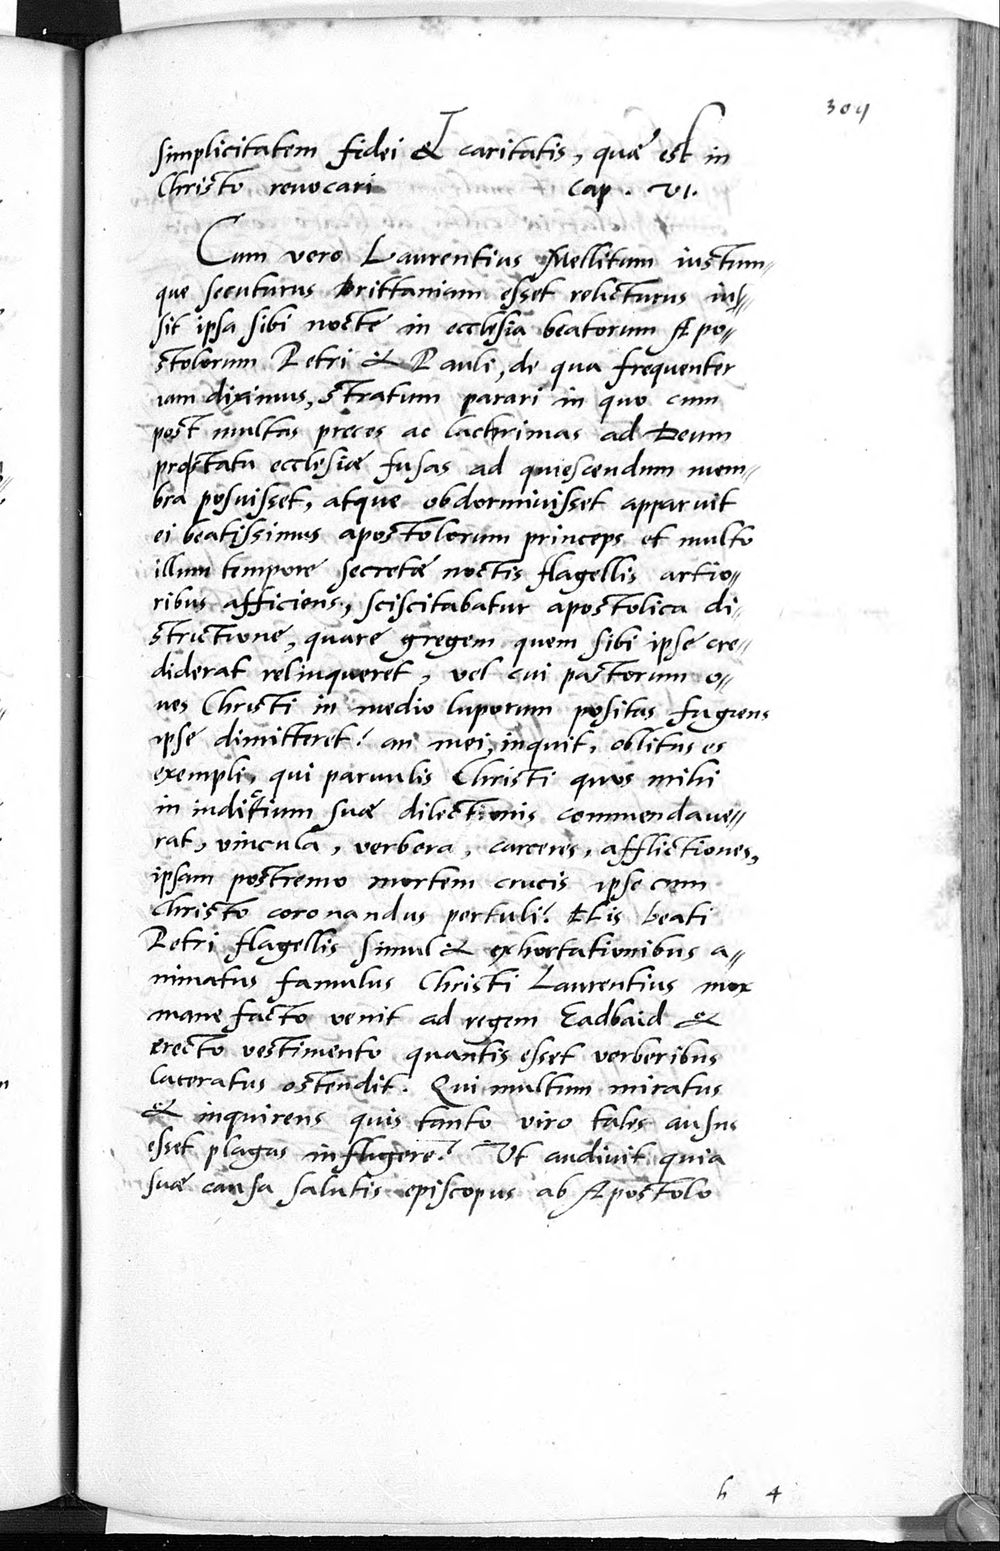 304
simplicitatem fidei & caritatis, quæ est in
Christo reuocari Cap. VI.
Cum vero Laurentius Mellitum iustum=
que secuturus Brittaniam esset relicturus ius=
sit ipsa sibi nocte in ecclesia beatorum Apo=
stolorum Petri & Pauli, de qua frequenter
iam diximus, stratum parari in quo cum
post multas preces ac lachrimas ad Deum
pro statu ecclesiæ fusas ad quiescendum mem=
bra posuisset, atque obdormiuisset apparuit
ei beatissimus apostolorum princeps et multo
illum tempore secretæ noctis flagellis artio=
ribus afficiens, sciscitabatur apostolica di=
strictione, quare gregem quem sibi ipse cre=
diderat relinqueret, vel cui pastorum o=
ues Christi in medio luporum positas fugiens
ipse dimitteret? an mei, inquit, oblitus es
exempli, qui paruulis Christi quos mihi
in inditium suæ dilectionis commendaue=
rat, vincula, verbera, carceres, afflictiones,
ipsam postremo mortem crucis ipse cum
Christo coronandus pertuli? His beati
Petri flagellis simul & exhortationibus a=
nimatus famulus Christi Laurentius mox
mane facto venit ad regem Eadbald &
recto vestimento quantis esset verberibus
laceratus ostendit. Qui multum miratus
& inquirens quis tanto viro tales ausus
esset plagas infligere? Ut audivit quia
suæ causa salutis episcopus ab Apostolo
h 4